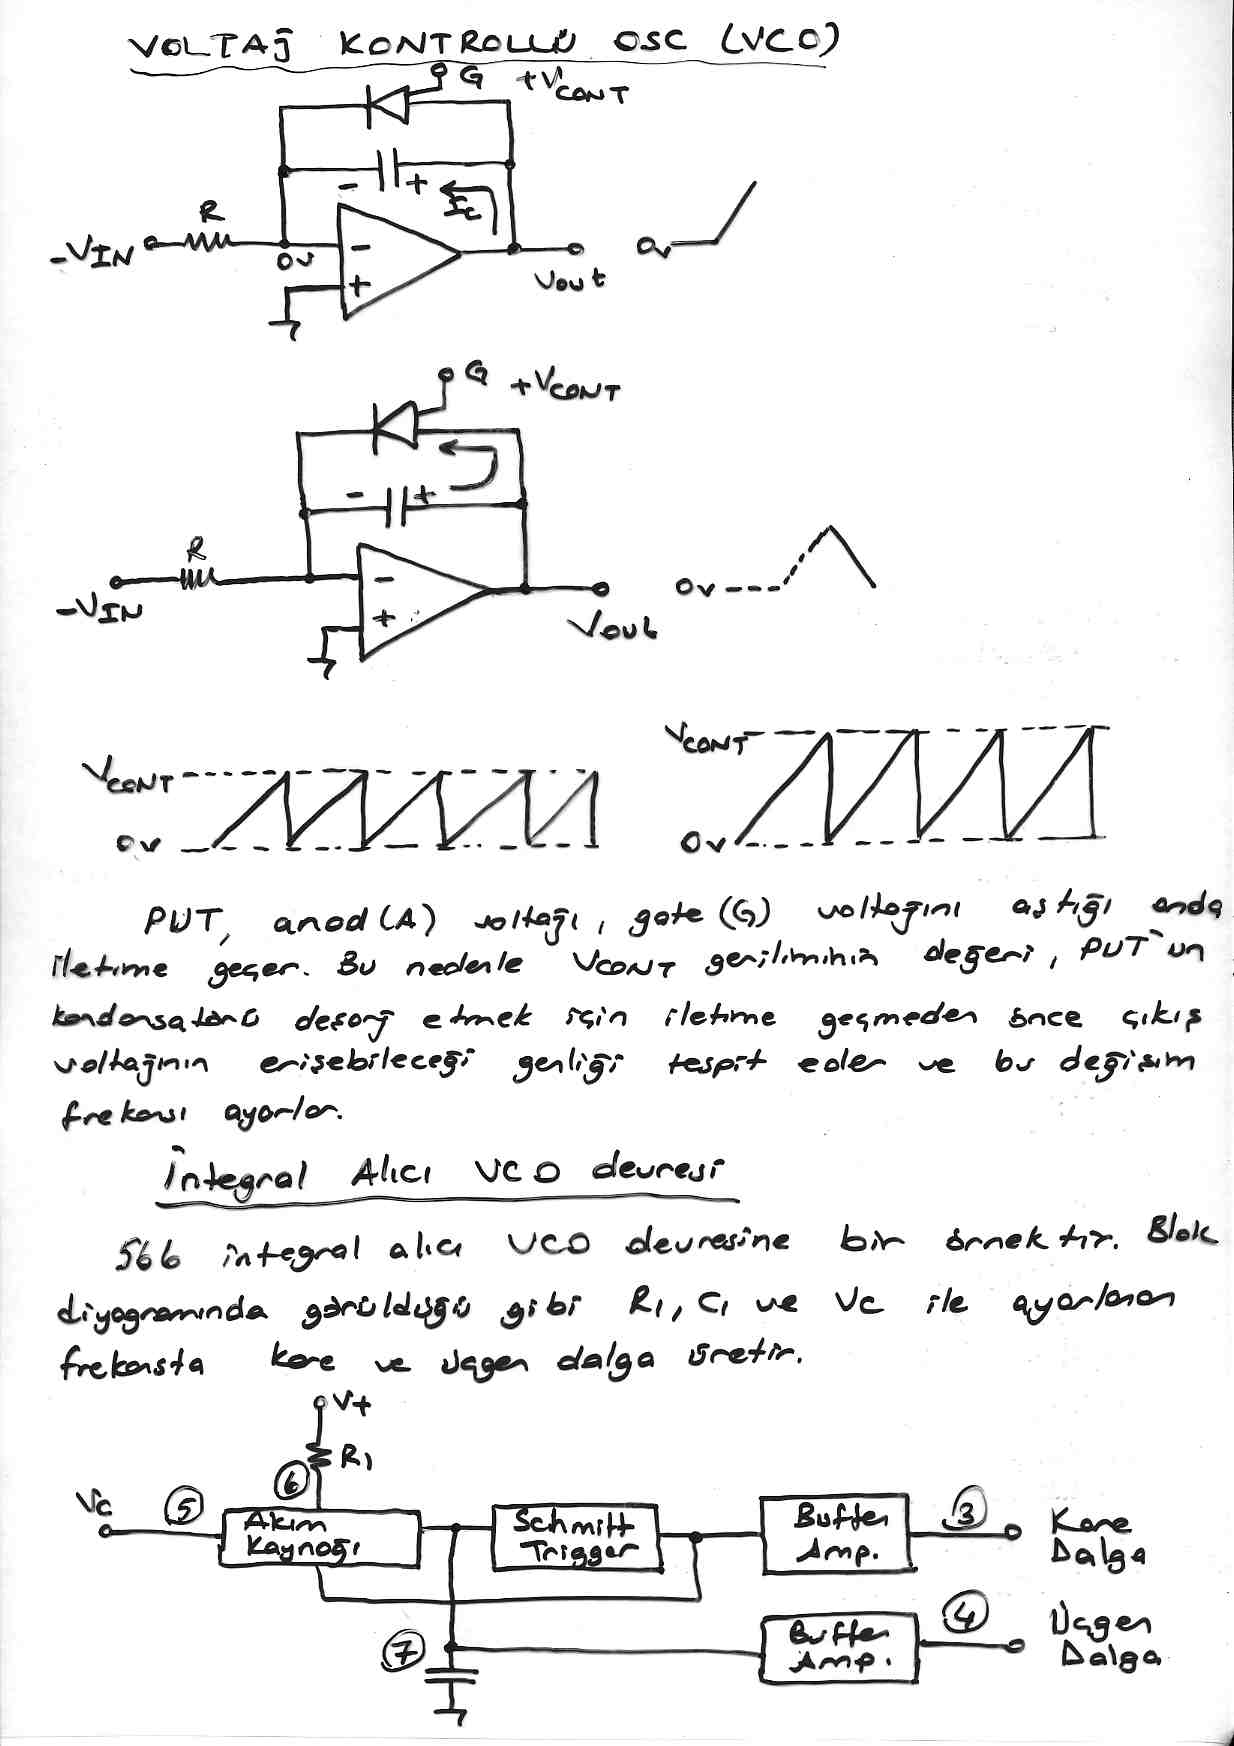 VOLTAJ KONTROLLÜ OSC (VCO)
G +VCONT
- +
Ic
R
-VIN
0v
-
+
Vout
0v
G +VCONT
- +
R
-VIN
-
+
Vout
0v
VCONT
0v
VCONT
0v
PUT, anod (A) voltajı, gate (G) voltajını aştığı anda
iletime geçer. Bu nedenle VCONT geriliminin değeri, PUT'un
kondansatörü deşarj etmek için iletime geçmeden önce çıkış
voltajının erişebileceği genliği tespit eder ve bu değişim
frekansı ayarlar.
İntegral Alıcı VCO devresi
566 integral alıcı VCO devresine bir örnektir. Blok
diyagramında görüldüğü gibi R1, C1 ve Vc ile ayarlanan
frekansta kare ve üçgen dalga üretir.
V+
R1
6
Vc
5
Akım
Kaynağı
Schmitt
Trigger
Buffer
Amp.
3
Kare
Dalga
7
Buffer
Amp.
4
Üçgen
Dalga